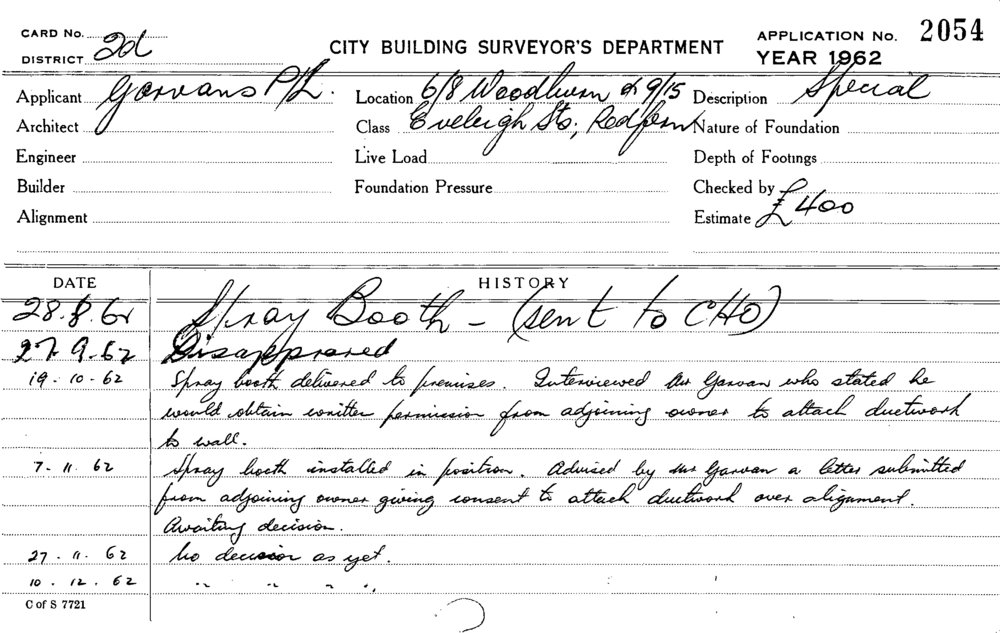 CARD No. 2d
DISTRICT
CITY BUILDING SURVEYOR'S DEPARTMENT
APPLICATION No. 2054
YEAR 1962
Applicant Garvans P/L.
Location 6/8 Woodburn & 9/15
Description Special
Architect
Class Eveleigh Sts, Redfern
Nature of Foundation
Engineer
Live Load
Depth of Footings
Builder
Foundation Pressure
Checked by
Alignment
Estimate £400
DATE HISTORY
28.8.62 Spray Booth - (sent to CHO)
27.9.62 Disapproved
19.10.62 Spray booth delivered to premises. Interviewed Mr Garvan who stated he
would obtain written permission from adjoining owner to attach ductwork
to wall.
7.11.62 Spray booth installed in position. Advised by Mr Garvan a letter submitted
from adjoining owner giving consent to attach ductwork over alignment.
Awaiting decision.
27.11.62 No decision as yet.
10.12.62 " " " "
C of S 7721